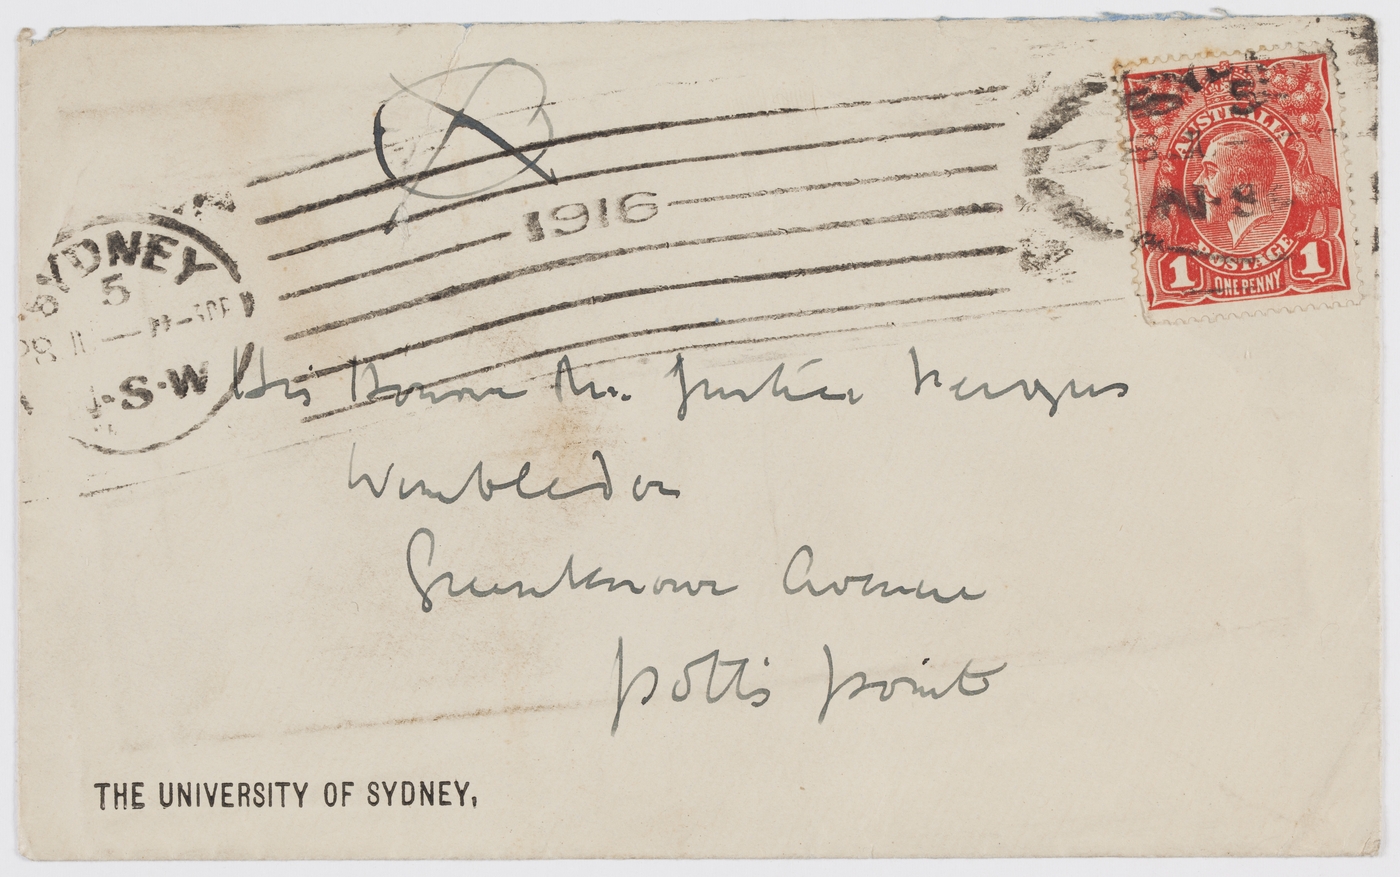 SYDNEY
5
28 II
N.S.W
1916
SY
28
N.S
AUSTRALIA
POSTAGE
1 ONE PENNY 1
His Honour Mr. Justice Ferguson
Wimbledon
Greenknowe Avenue
Potts Point
THE UNIVERSITY OF SYDNEY,